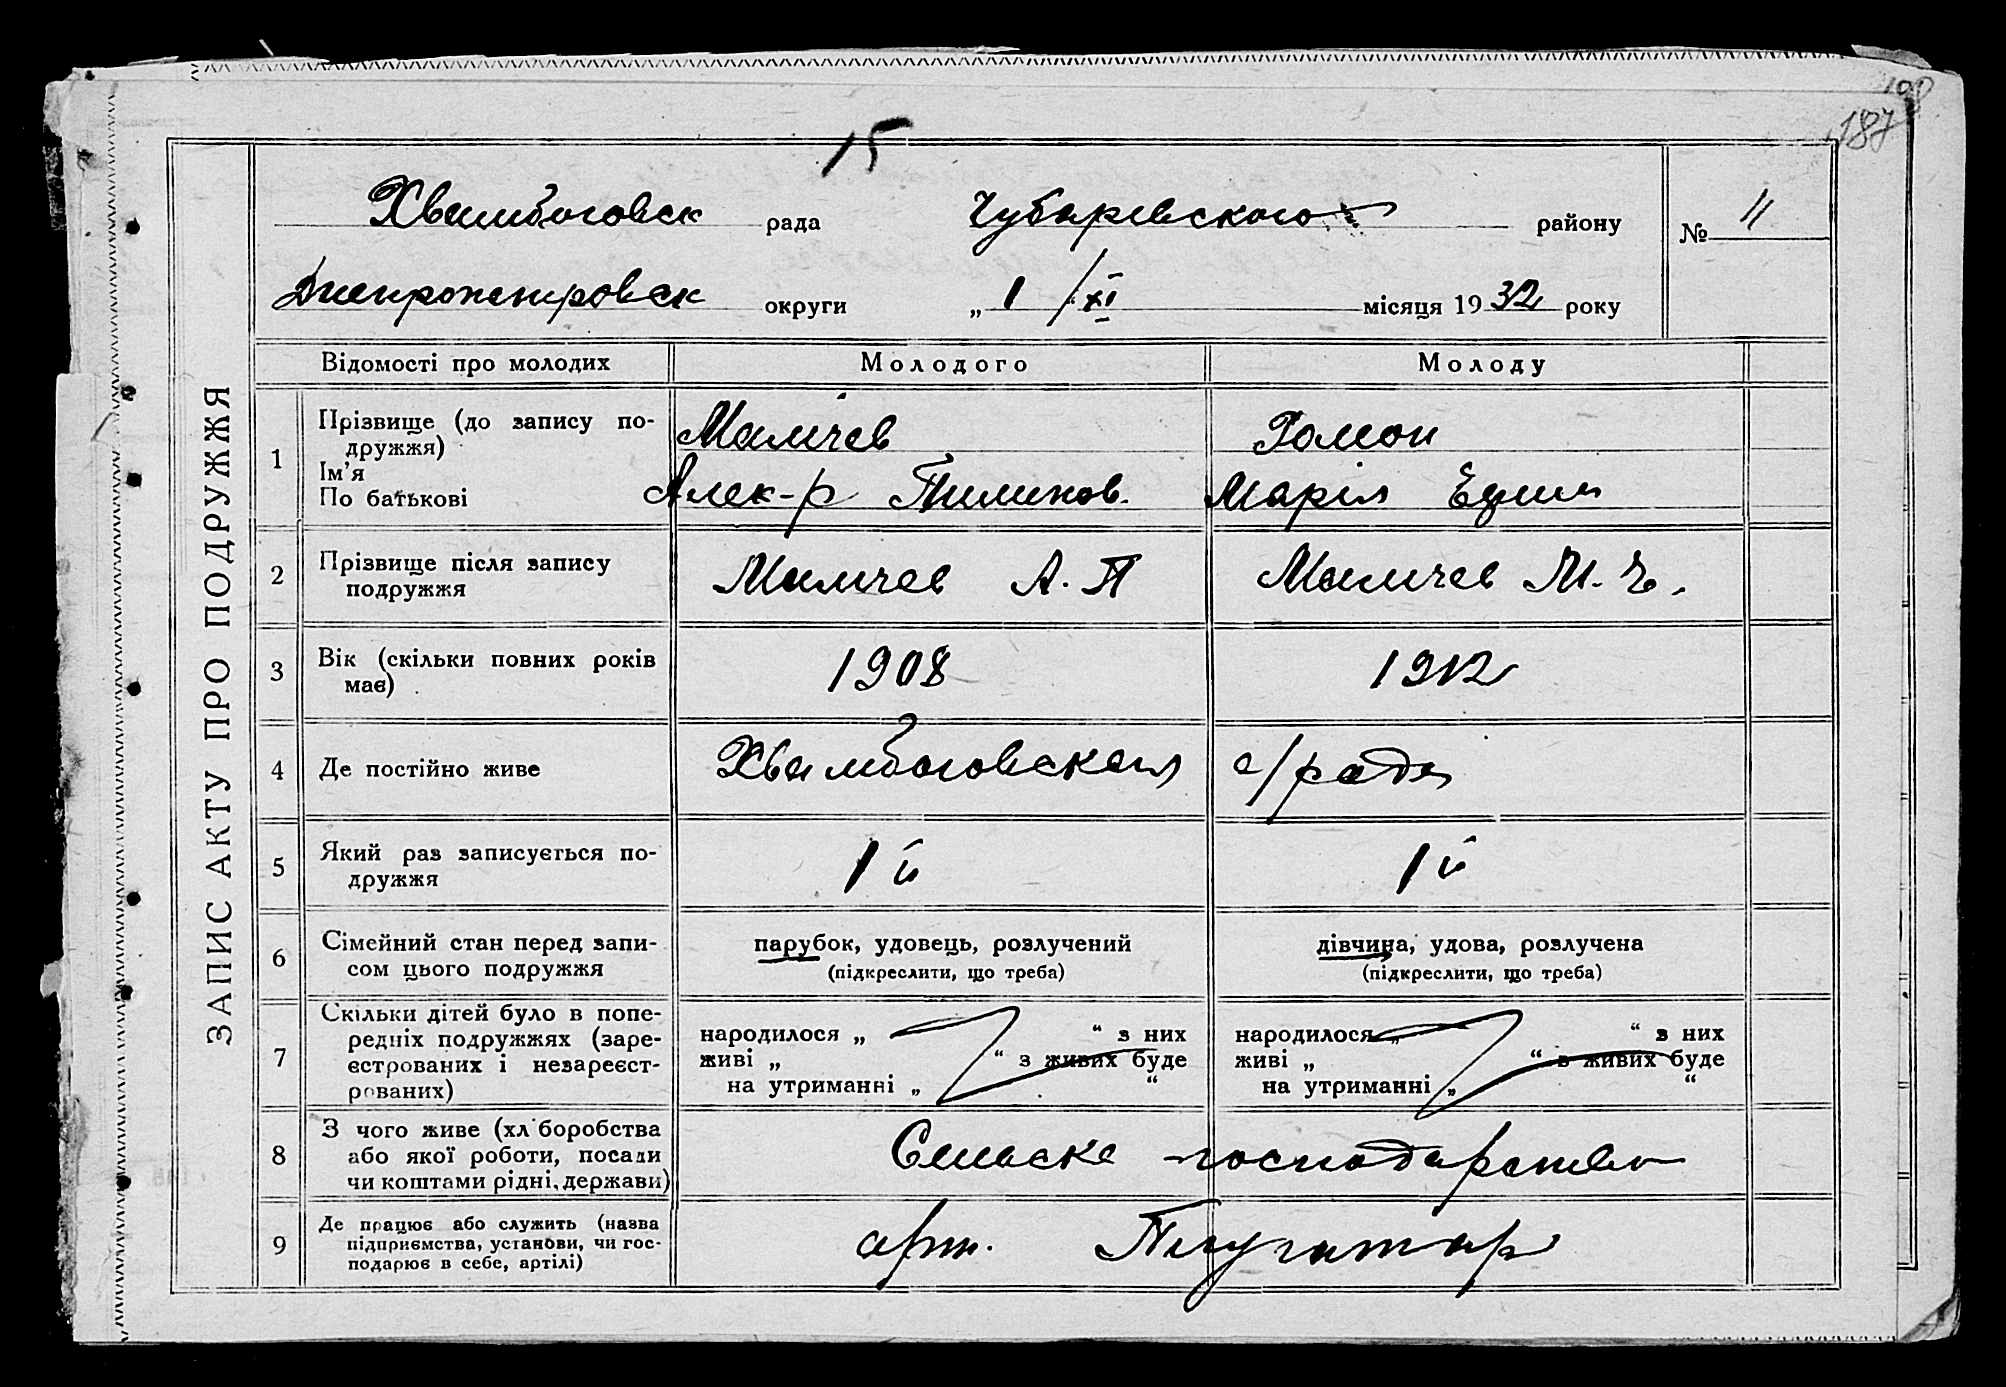 190
187
15
Хвалибоговск рада Чубаревского району
№ 11
Днепропетровск округи „ 1 / “ XI місяця 1932 року
ЗАПИС АКТУ ПРО ПОДРУЖЖЯ
Відомості про молодих Молодого Молоду
1 Прізвище (до запису по-
дружжя)
Ім’я
По батькові
Малічев
Алек-р Пилипов.
Гомон
Марія
2 Прізвище після запису
подружжя
Малічев А. П
Малічев М. Є.
3 Вік (скільки повних років
має)
1908 1912
4 Де постійно живе Хвалибоговская с/рада
5 Який раз записується по-
дружжя
1й 1й
6 Сімейний стан перед запи-
сом цього подружжя
парубок, удовець, розлучений
(підкреслити, що треба)
дівчина, удова, розлучена
(підкреслити, що треба)
7 Скільки дітей було в попе-
редніх подружжях (заре-
єстрованих і незареєст-
рованих)
народилося „ “ з них
живі „ “ з живих буде
на утриманні „ “
народилося „ “ з них
живі „ “ з живих буде
на утриманні „ “
8 З чого живе (хліборобства
або якої роботи, посади
чи коштами рідні, держави)
Сельске господарство
9 Де працює або служить (назва
підприємства, установи, чи гос-
подарює в себе, артілі)
арт. Плугатар